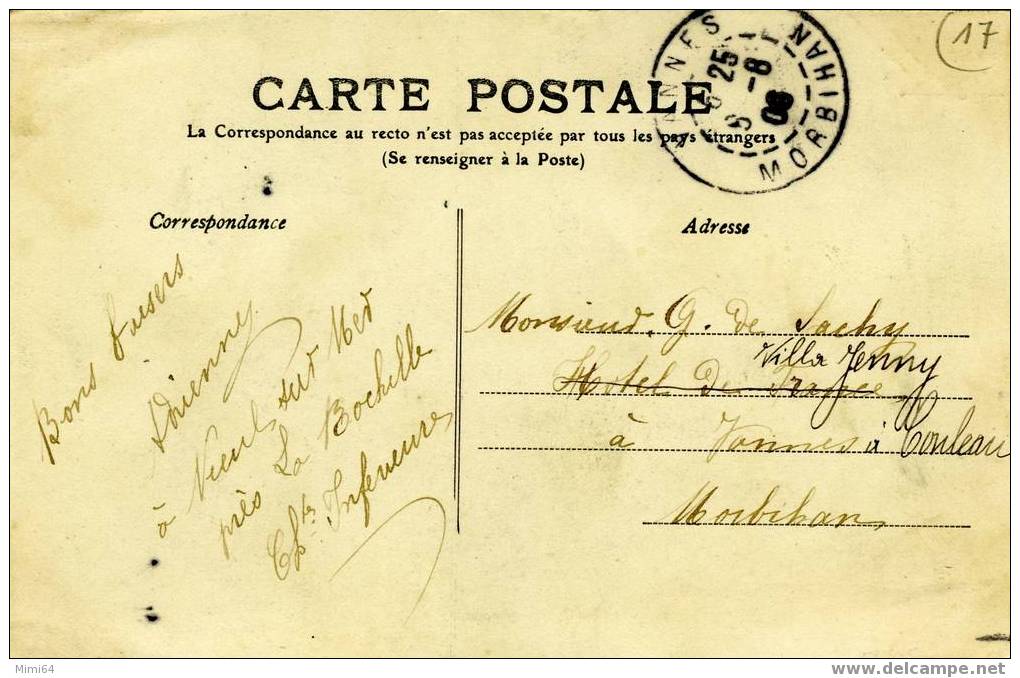 (17
VANNES
6 25
5 -8
08
MORBIHAN
CARTE POSTALE
La Correspondance au recto n'est pas acceptée par tous les pays étrangers
(Se renseigner à la Poste)
Correspondance
Bons baisers
Adrienne
à Nieul sur Mer
près La Rochelle
Ch.te Inférieure
Adresse
Monsieur G. de Sachy
Villa Jenny
Hotel de France
à Vannes à Conleau
Morbihan
Mimi64
www.delcampe.net